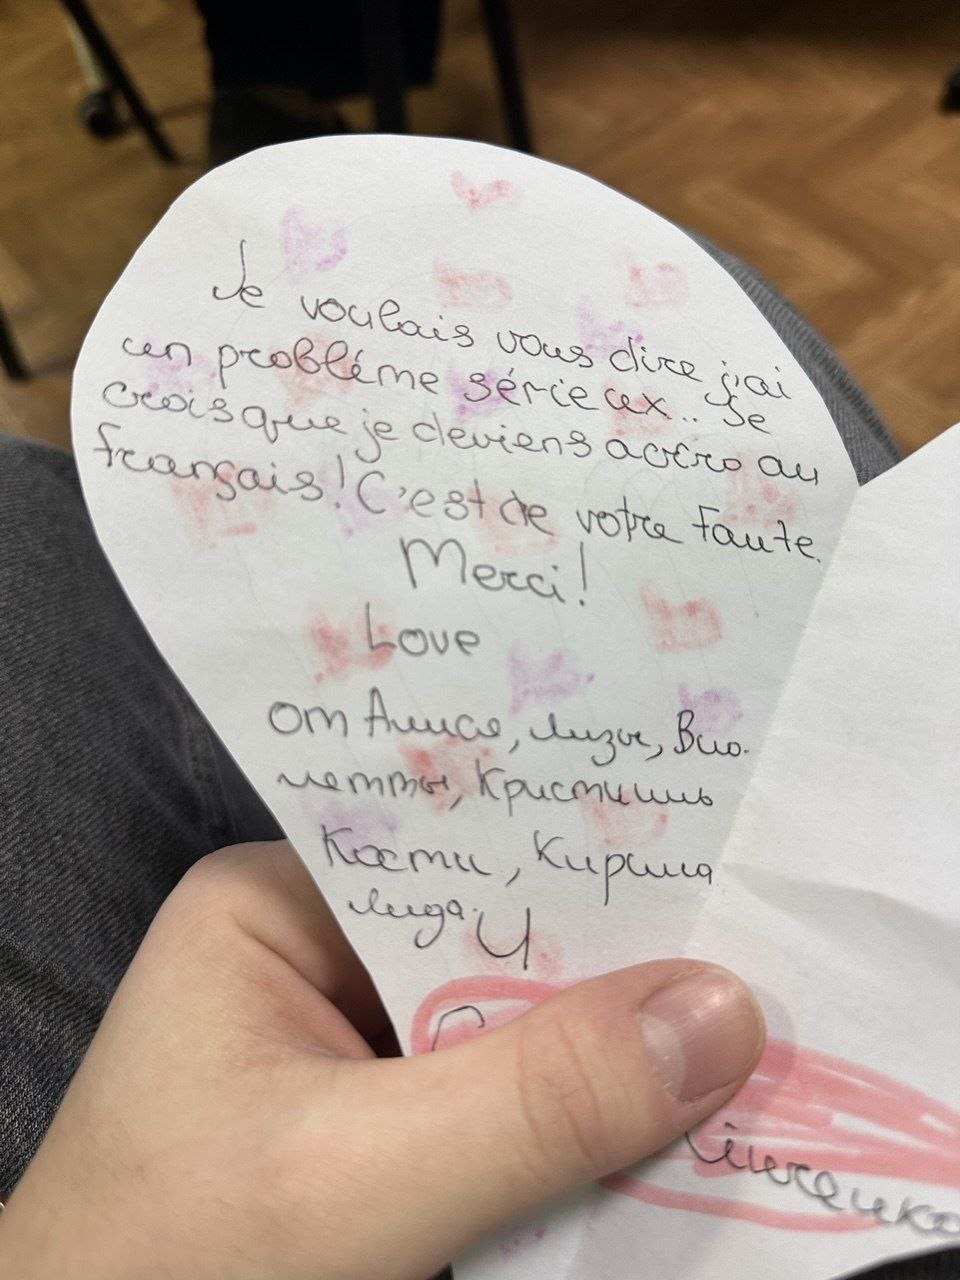 Je voulais vous dire j'ai
un probléme sérieux.. Je
crois que je deviens accro au
français! C'est de votre faute.
Merci!
Love
от Алисы, Лизы, Вио-
летты, Кристины
Кости, Кирилла
Лида.